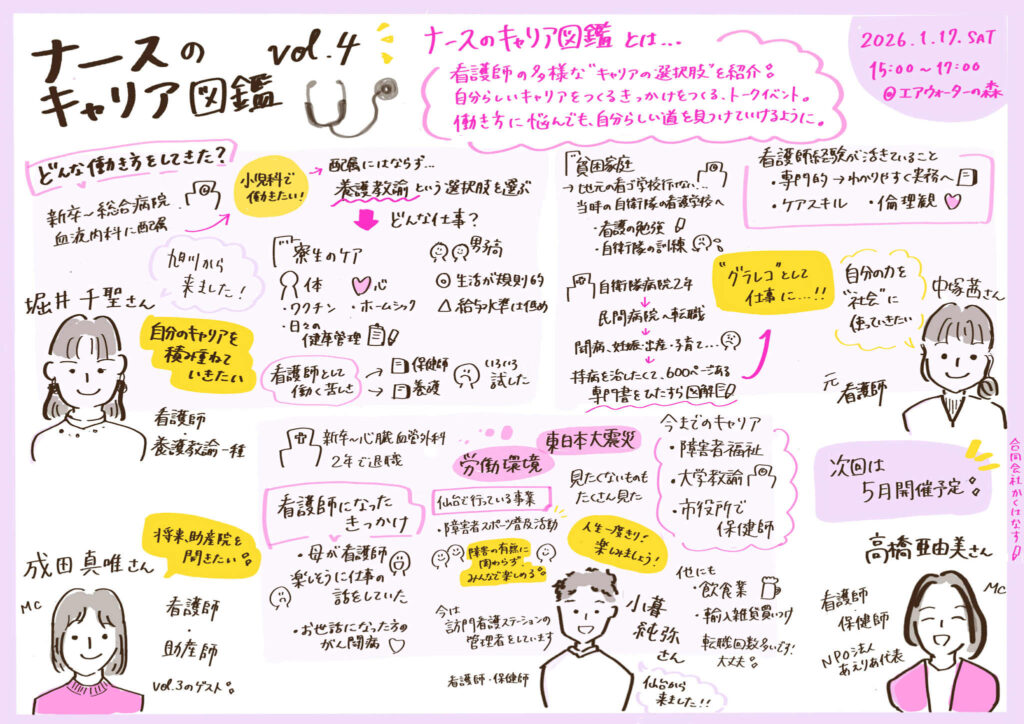 ナースの
キャリア図鑑
vol.4
ナースのキャリア図鑑とは...
看護師の多様な"キャリアの選択肢"を紹介。
自分らしいキャリアをつくるきっかけをつくる、トークイベント。
働き方に悩んでも、自分らしい道を見つけていけるように。
2026.1.17.SAT
15:00~17:00
@エアウォーターの森
どんな働き方をしてきた?
新卒~総合病院
血液内科に配属
小児科で
働きたい!
配属にはならず...
養護教諭という選択肢を選ぶ
どんな仕事?
旭川から
来ました!
堀井千聖さん
自分のキャリアを
積み重ねて
いきたい
看護師
養護教諭一種
寮生のケア
体
心
・ワクチン
・ホームシック
・日々の
健康管理
男子高
◎生活が規則的
△給与水準は低め
看護師として
働く苦しさ
→保健師
→養護
いろいろ
試した
貧困家庭
→地元の看ゴ学校行けない...
当時の自衛隊の看護学校へ
・看護の勉強
・自衛隊の訓練
自衛隊病院2年
民間病院へ転職
闘病、妊娠・出産・子育て...
持病を治したくて、600ページある
専門書をひたすら図解
看護師経験が活きていること
・専門的→わかりやすく実務へ
・ケアスキル
・倫理観
"グラレコ"として
仕事に...!!
自分の力を
"社会"に
使っていきたい
中塚茜さん
元
看護師
新卒~心臓血管外科
2年で退職
労働環境
東日本大震災
見たくないものも
たくさん見た
看護師になった
きっかけ
・母が看護師
楽しそうに仕事の
話をしていた
・お世話になった方の
がん闘病
仙台で行っている事業
・障害者スポーツ普及活動
障害の有無に
関わらず
みんなで楽しめる。
今は
訪問看護ステーションの
管理者をしています
人生一度きり!
楽しみましょう!
今までのキャリア
・障害者福祉
・大学教諭
・市役所で
保健師
他にも
・飲食業
・輸入雑貨買いつけ
転職回数多いです!
大丈夫。
小暮
純弥
さん
看護師・保健師
仙台から
来ました!!
将来、助産院を
開きたい。
成田真唯さん
MC
看護師
・
助産師
vol.3のゲスト。
次回は
5月開催予定。
高橋亜由美さん
MC
看護師
保健師
NPO法人
あえりあ代表
合同会社かくはなす